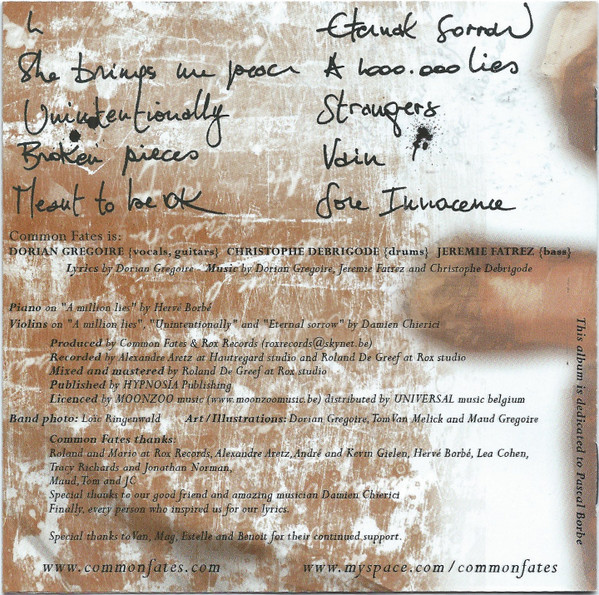 Eternal Sorrow
She brings me peace
A 1.000.000 lies
Unintentionally
Strangers
Broken pieces
Vain
Meant to be OK
Sore Innocence
Common Fates is:
DORIAN GREGOIRE {vocals, guitars} CHRISTOPHE DEBRIGODE {drums} JEREMIE FATREZ {bass}
Lyrics by Dorian Gregoire - Music by Dorian Gregoire, Jeremie Fatrez and Christophe Debrigode
Piano on "A million lies" by Hervé Borbé
Violins on "A million lies", "Unintentionally" and "Eternal sorrow" by Damien Chierici
Produced by Common Fates & Rox Records (roxrecords@skynet.be)
Recorded by Alexandre Aretz at Hautregard studio and Roland De Greef at Rox studio
Mixed and mastered by Roland De Greef at Rox studio
Published by HYPNOSIA Publishing
Licenced by MOONZOO music (www.moonzoomusic.be) distributed by UNIVERSAL music belgium
Band photo: Loïc Ringenwald Art/Illustrations: Dorian Gregoire, Tom Van Melick and Maud Gregoire
Common Fates thanks:
Roland and Mario at Rox Records, Alexandre Aretz, André and Kevin Gielen, Hervé Borbé, Lea Cohen,
Tracy Richards and Jonathan Norman,
Maud, Tom and JC
Special thanks to our good friend and amazing musician Damien Chierici
Finally, every person who inspired us for our lyrics.
Special thanks to Van, Mag, Estelle and Benoit for their continued support.
www.commonfates.com www.myspace.com/commonfates
This album is dedicated to Pascal Borbe